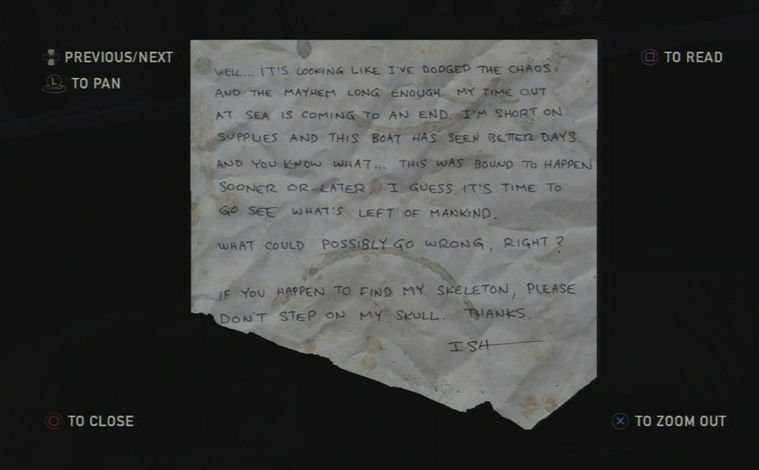 PREVIOUS/NEXT
L TO PAN
TO READ
WELL... IT'S LOOKING LIKE I'VE DODGED THE CHAOS
AND THE MAYHEM LONG ENOUGH. MY TIME OUT
AT SEA IS COMING TO AN END. I'M SHORT ON
SUPPLIES AND THIS BOAT HAS SEEN BETTER DAYS.
AND YOU KNOW WHAT... THIS WAS BOUND TO HAPPEN
SOONER OR LATER. I GUESS IT'S TIME TO
GO SEE WHAT'S LEFT OF MANKIND.
WHAT COULD POSSIBLY GO WRONG, RIGHT?
IF YOU HAPPEN TO FIND MY SKELETON, PLEASE
DON'T STEP ON MY SKULL. THANKS.
ISH
TO CLOSE
TO ZOOM OUT